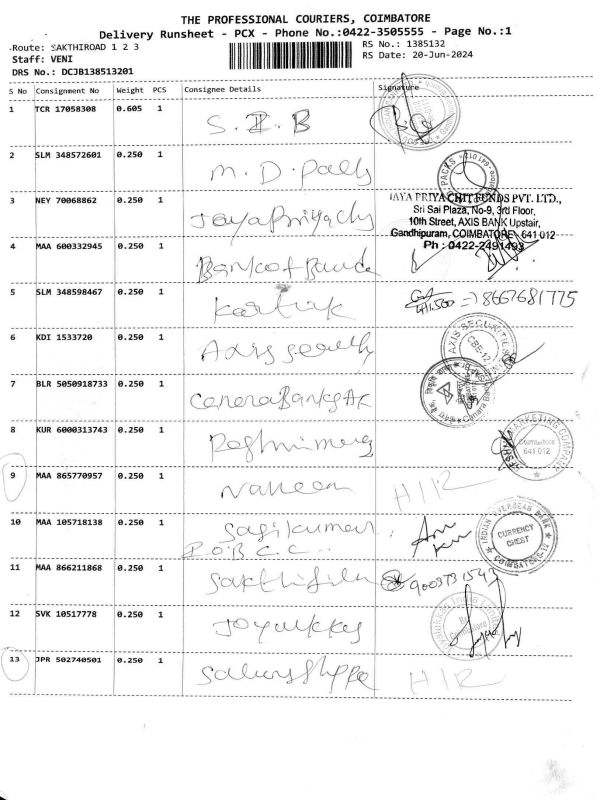 THE PROFESSIONAL COURIERS, COIMBATORE
Delivery Runsheet - PCX - Phone No.:0422-3505555 - Page No.:1
Route: SAKTHIROAD 1 2 3
RS No.: 1385132
Staff: VENI
RS Date: 20-Jun-2024
DRS No.: DCJB138513201
S No Consignment No Weight PCS Consignee Details Signature
1 TCR 17058308 0.605 1 S.I.B
2 SLM 348572601 0.250 1 M.D.
PACKS 641 012
3 NEY 70068862 0.250 1
JAYA PRIYA CHIT FUNDS PVT. LTD.,
Sri Sai Plaza, No-9, 3rd Floor,
10th Street, AXIS BANK Upstair,
Gandhipuram, COIMBATORE 641 012
Ph : 0422-2491493
4 MAA 600332945 0.250 1 Bank of Baroda
5 SLM 348598467 0.250 1 Kartik 8667681775
6 KDI 1533720 0.250 1 Axis
AXIS SECURITIES
CBE-12
7 BLR 5050918733 0.250 1 Canera Bank
Canara Bank
8 KUR 6000313743 0.250 1
MARKETING COMPANY
Coimbatore
641 012
9 MAA 865770957 0.250 1 Naheen H/R
10 MAA 105718138 0.250 1 Sasikumar
I.O.B C.C
INDIAN OVERSEAS BANK
CURRENCY
CHEST
COIMBATORE
11 MAA 866211868 0.250 1 9003731543
12 SVK 10517778 0.250 1
Coimbatore
13 JPR 502740501 0.250 1 H/R